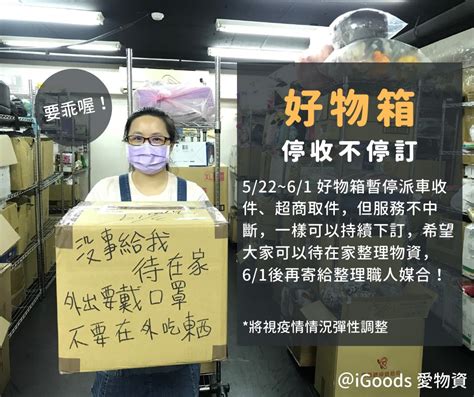 要乖喔！
好物箱
停收不停訂
5/22~6/1 好物箱暫停派車收
件、超商取件，但服務不中
斷，一樣可以持續下訂，希望
大家可以待在家整理物資，
6/1後再寄給整理職人媒合！
*將視疫情情況彈性調整
沒事給我
待在家
外出要戴口罩
不要在外吃東西
@iGoods 愛物資